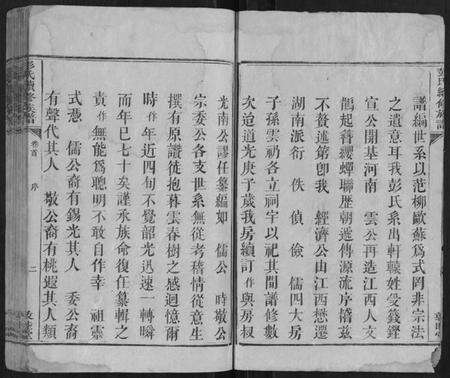 譜編世系以范柳歐蘇爲式罔非宗法
之遺意耳我彭氏系出軒轅姓受籛鏗
宣公開基河南 雲公再造江西人文
鵲起簪纓蟬聯歷朝遞傳源流序牘玆
不贅述第卽我 經濟公由江西懋遷
湖南派衍 佚 偵 儉 儒四大房
子孫雲礽各立祠宇以祀其間譜修數
次迨道光庚子歲我房續訂作與房叔
光南公謬任纂編如 儒公 時敬公
宗委公各支世系無從考稽情從意生
撰有原讚徒抱暮雲春樹之感迴憶爾
時作年近四旬不覺韶光迅速一轉瞬
而年已七十矣謹承族命復任纂輯之
責作無能爲聰明不敢自作幸 祖靈
式憑 儒公裔有錫光其人 委公裔
有聲代其人 敬公裔有桃遐其人類
彭氏續修族譜
卷首 序
二